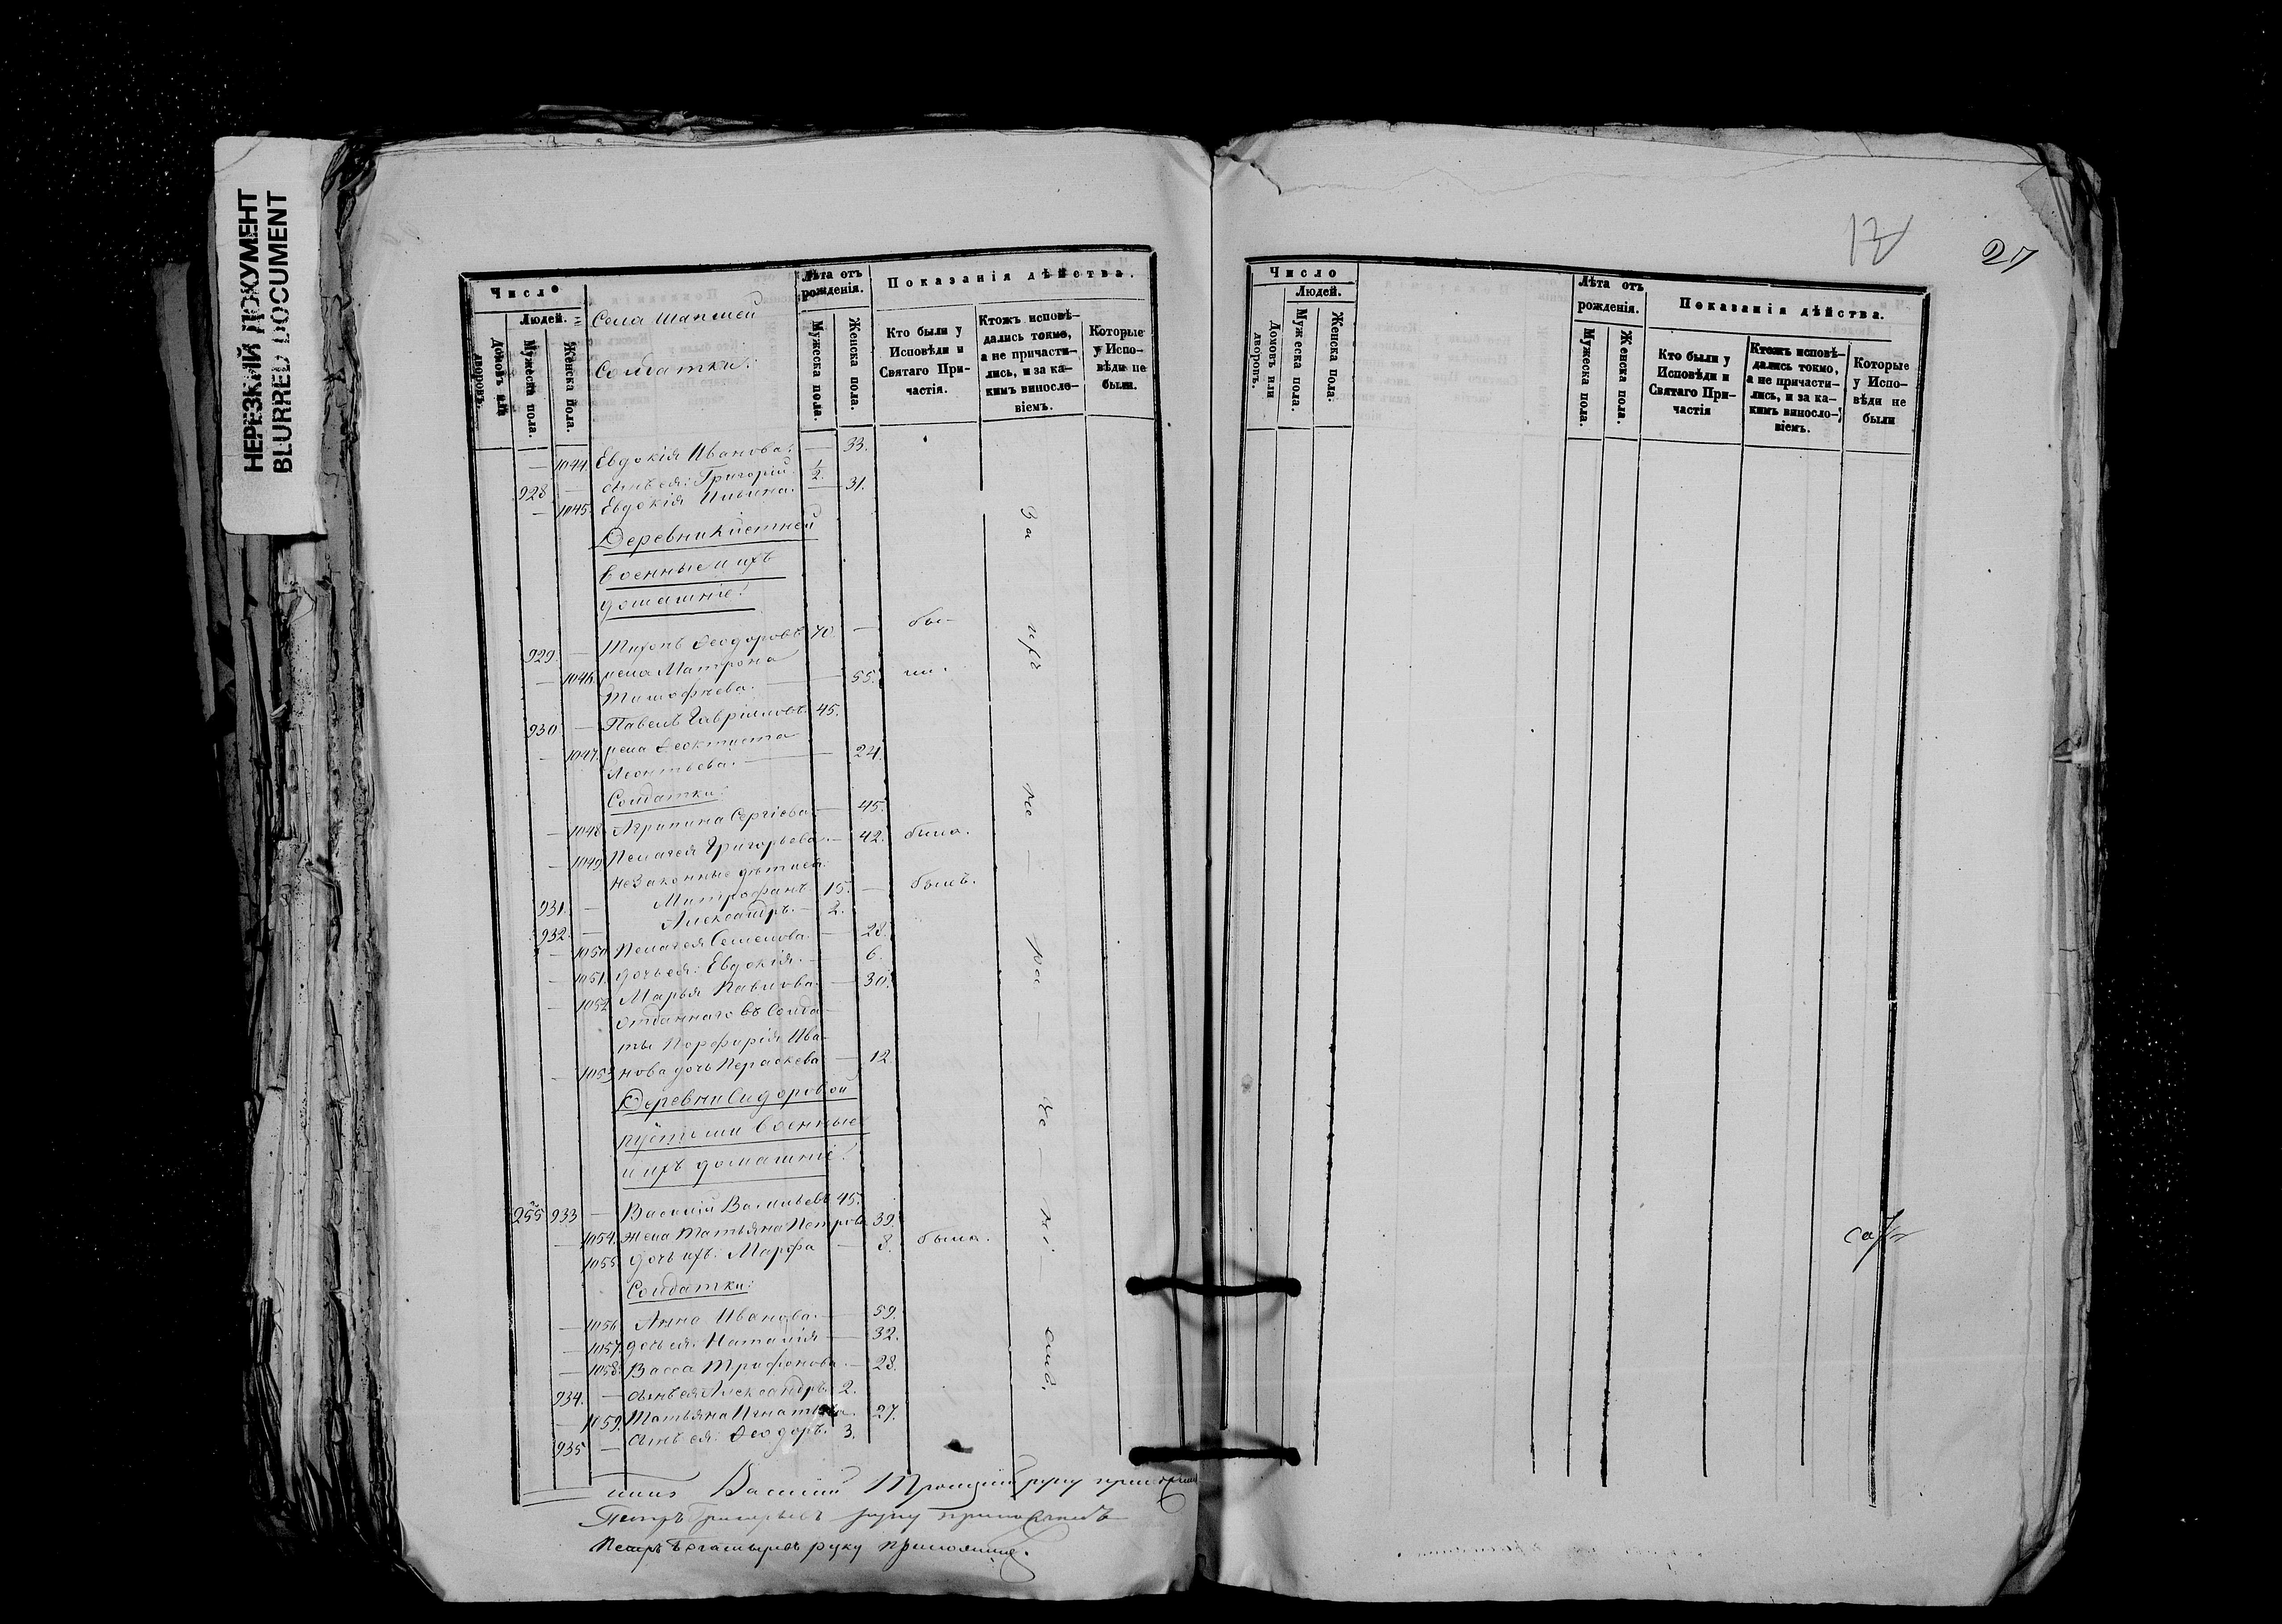 НЕРЕЗКИЙ ДОКУМЕНТ
BLURRED DOCUMENT
Число
Людей.
Домовъ или дворовъ.
Мужеска пола.
Женска пола.
Села Шапшей
Солдатки:
Лѣта отъ рожденія.
Мужеска пола.
Женска пола.
Показанія дѣйства.
Кто были у Исповѣди и Святаго Причастія.
Ктожъ исповѣдались токмо, а не причастились, и за какимъ винословіемъ.
Которые у Исповѣди не были.
— 1044. Евдокія Иванова. — 33.
928 — сынъ ея: Григорій. 1/2.
— 1045. Евдокія Ильина. — 31.
Деревни
военные и ихъ
домашніе:
929. — Тихонъ Ѳеодоровъ 70. — бы-
— 1046. жена Матрона
Тимофѣева. — 55. ли.
930 — Павелъ Гавріиловъ. 45.
— 1047. жена Ѳеоктиста
Леонтьева. — 24.
Солдатки:
— 1048. Агрипина Сергіева — 45.
— 1049. Пелагея Григорьева. — 42. была.
незаконные дѣти ея:
931. — Митрофанъ 15. — былъ.
932. — Александръ. — 2.
— 1050 Пелагея Семенова. — 28.
— 1051. дочь ея: Евдокія. — 6.
— 1052 Марья Павлова. — 30.
отданнаго въ Солда-
ты Порфирія Ива-
— 1053 нова дочь Параскева — 12.
Деревни Сидоровой
пустоши военные
и ихъ домашніе:
255 933 — Василій Васильевъ 45.
— 1054. жена Татьяна Петрова 39.
— 1055. дочь ихъ: Марфа — 8. была.
Солдатки:
— 1056. Анна Иванова. — 59.
— 1057. дочь ея. Наталія — 32.
— 1058. Васса Трифонова. — 28.
934. — сынъ ея Александръ. 2.
— 1059. Татьяна Игнатьева. 27.
935 — сынъ ея: Ѳеодоръ. 3.
За ихъ не — ра — че — ні
Василій Троицкій руку приложилъ
Петръ Григорьевъ руку приложилъ
Петръ Богатыревъ руку приложилъ.
27
Число
Людей.
Домовъ или дворовъ.
Мужеска пола.
Женска пола.
Лѣта отъ рожденія.
Мужеска пола.
Женска пола.
Показанія дѣйства.
Кто были у Исповѣди и Святаго Причастія
Ктожъ исповѣдались токмо, а не причастились, и за какимъ винословіемъ.
Которые у Исповѣди не были